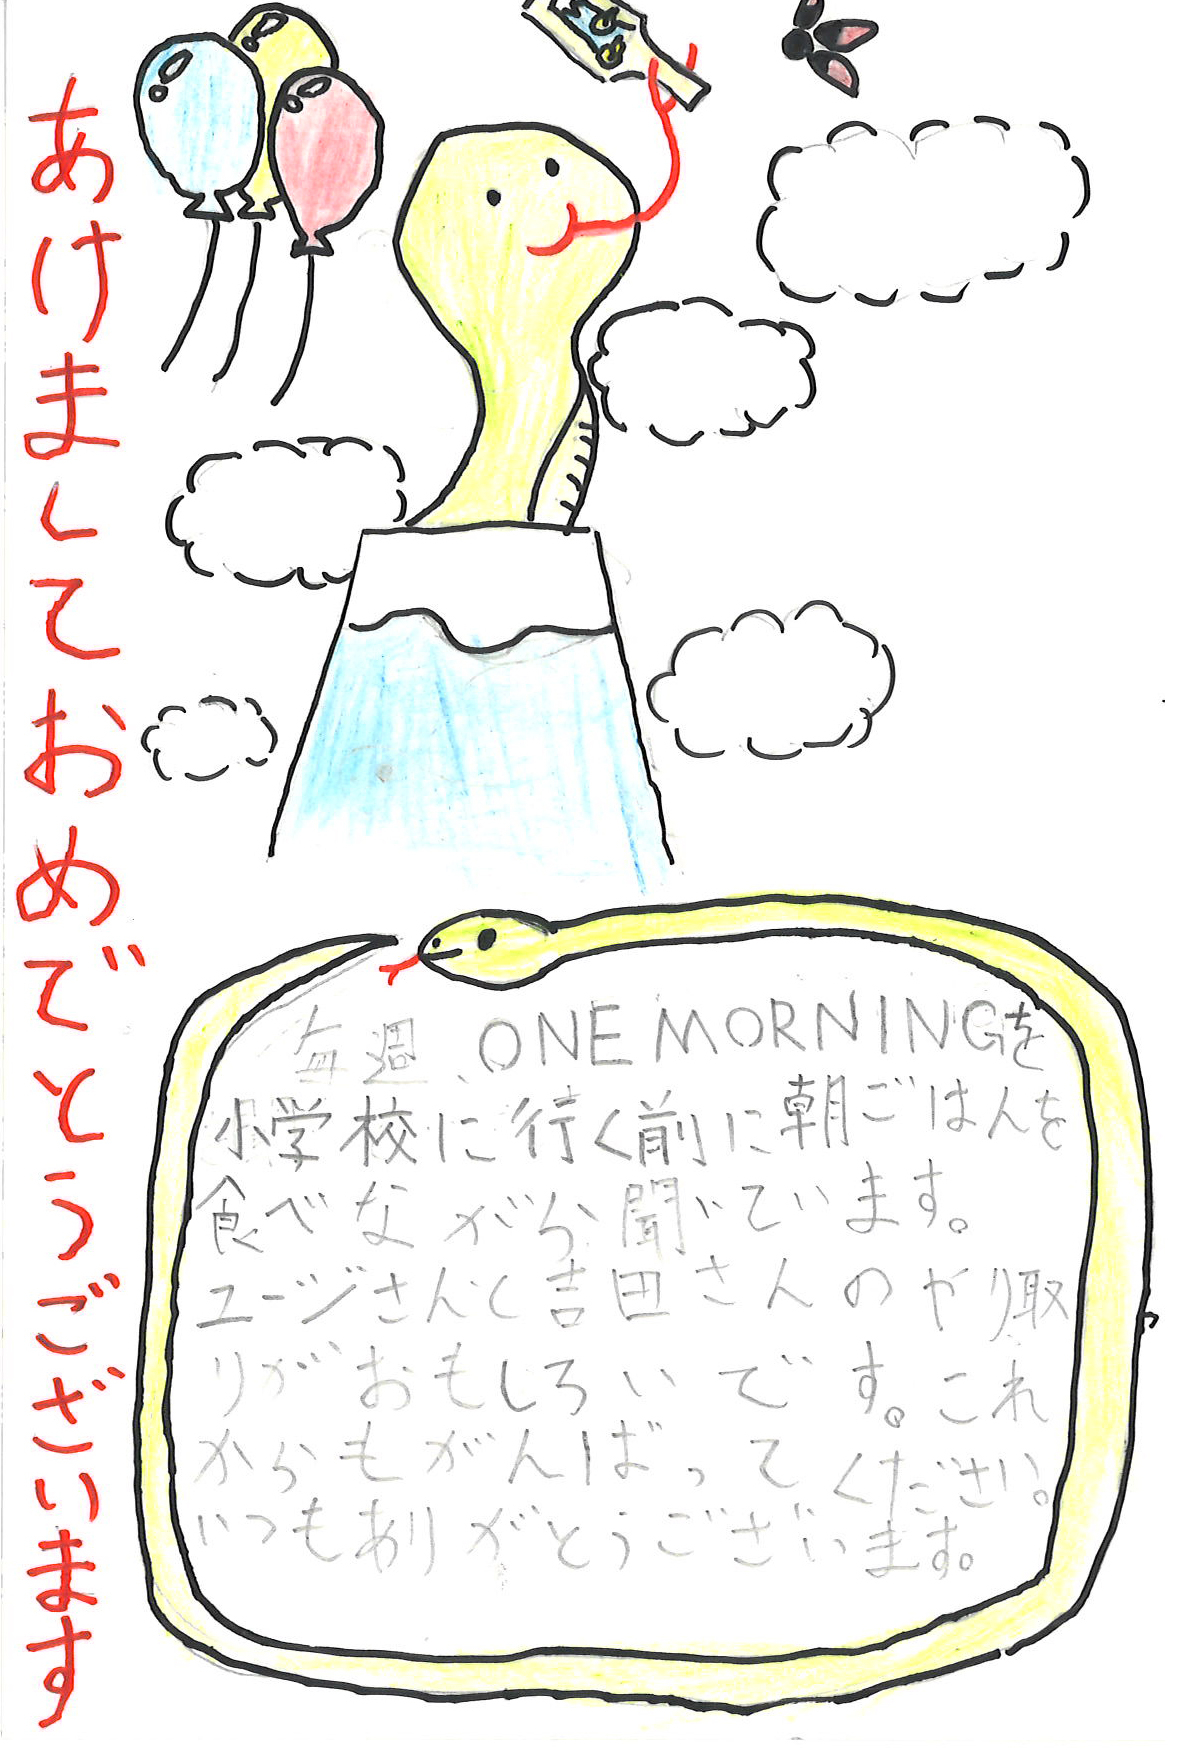 あけましておめでとうございます
毎週、ONE MORNINGを
小学校に行く前に朝ごはんを
食べながら聞いています。
ユージさんと吉田さんのやり取
りがおもしろいです。これ
からもがんばってください。
いつもありがとうございます。